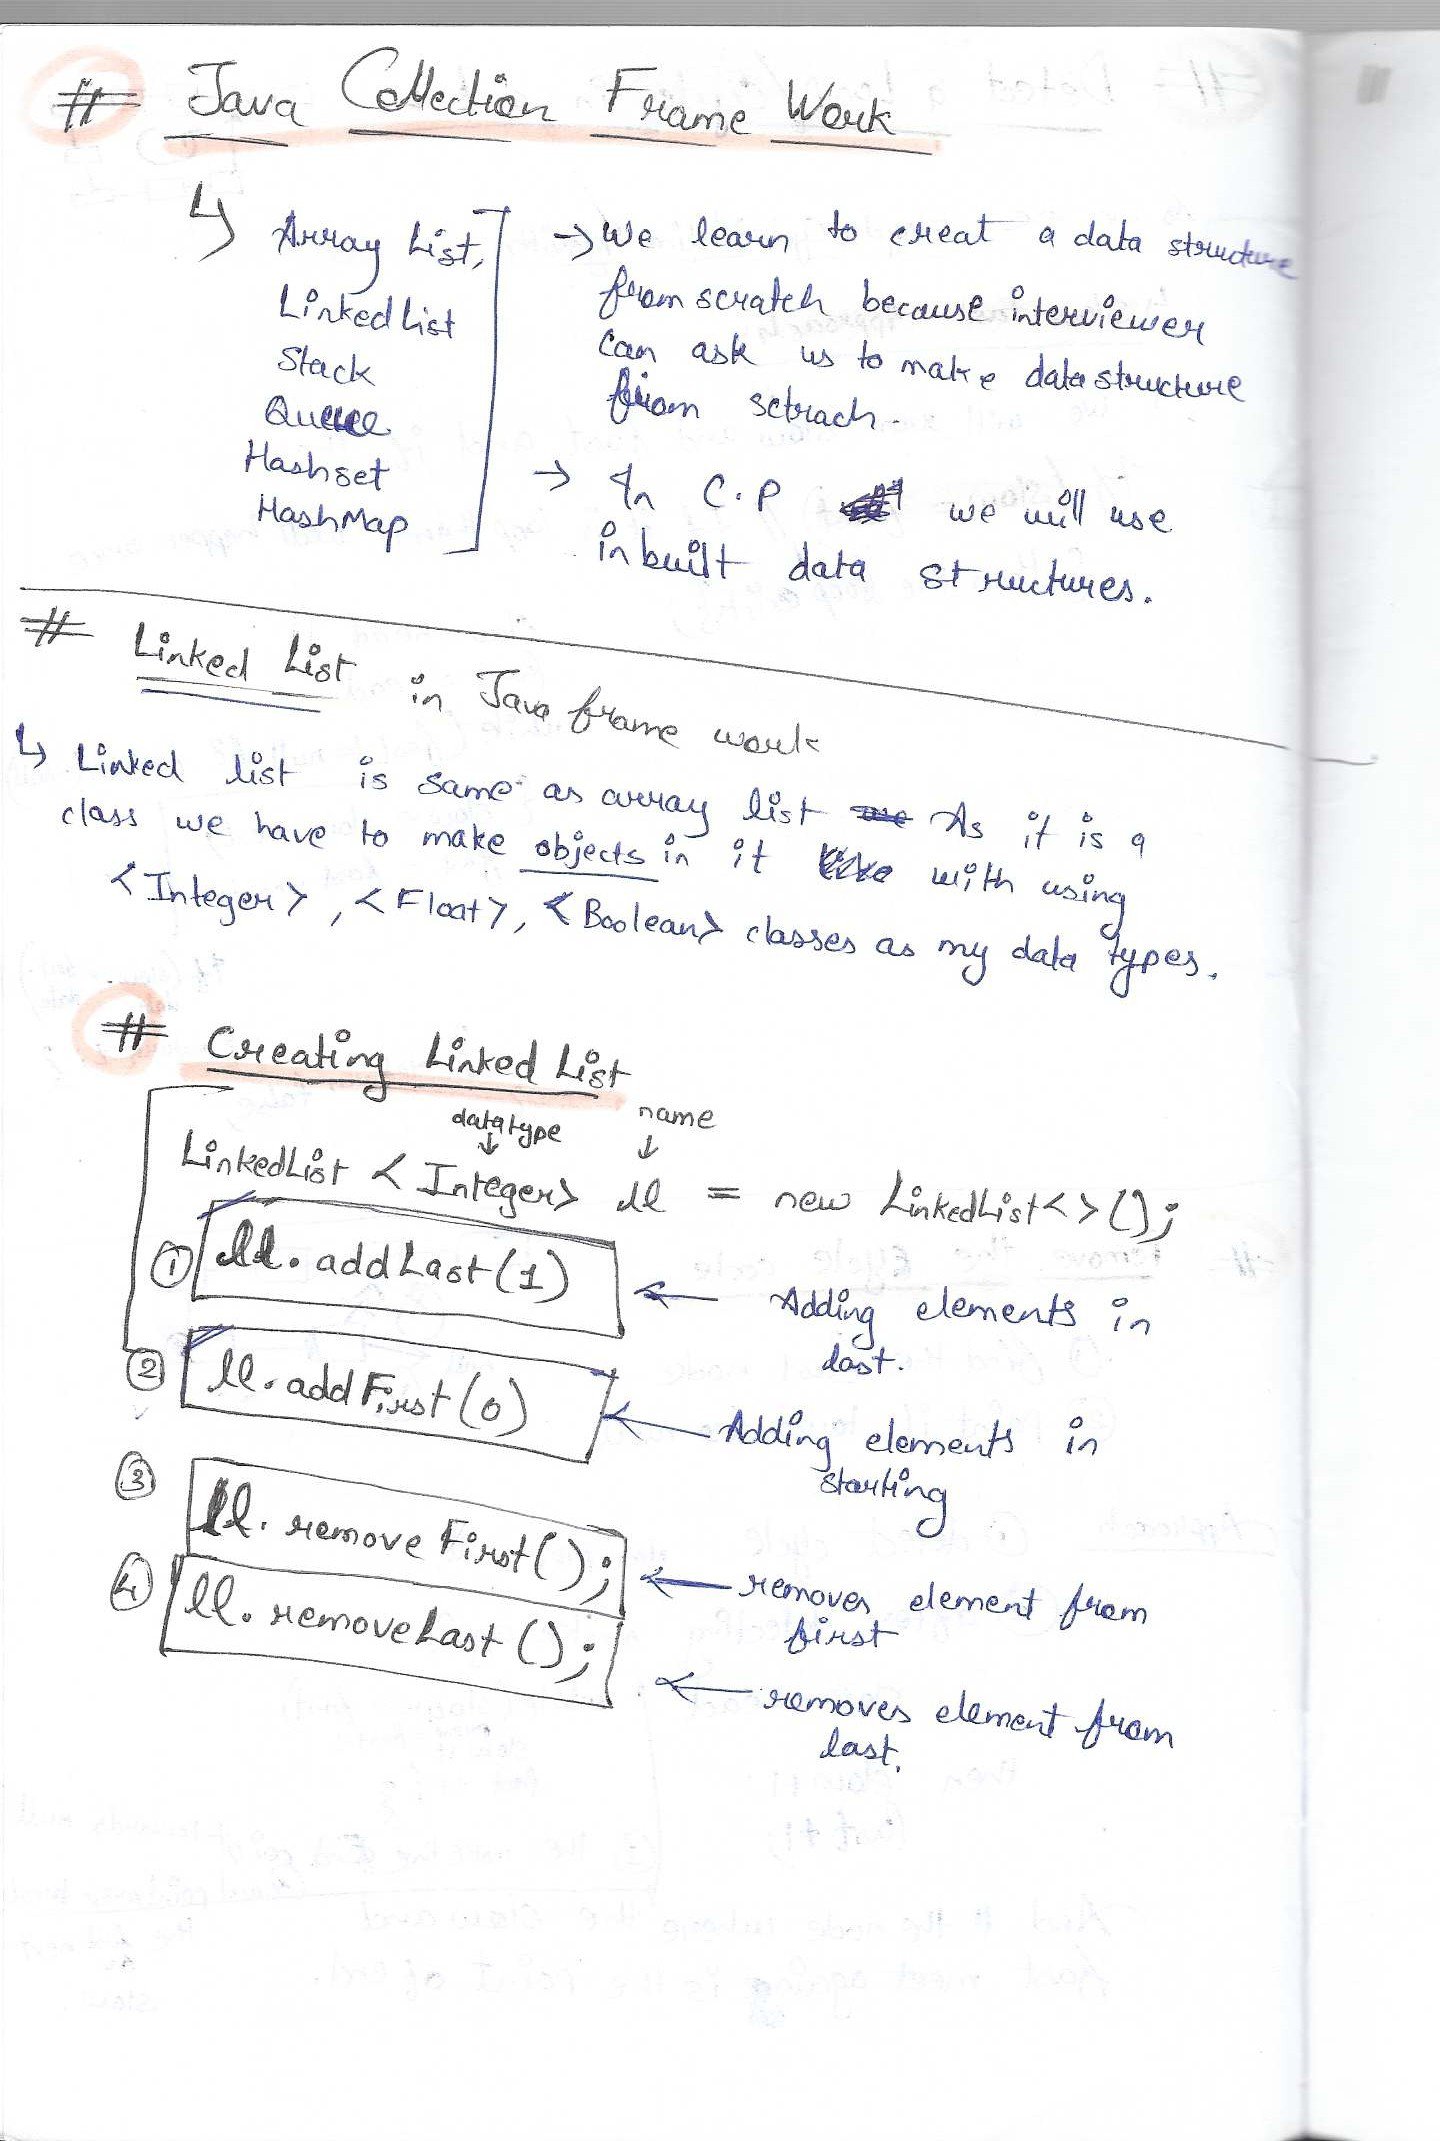 # Java Collection Frame Work
↳ Array List,
LinkedList
Stack
Queue
Hashset
HashMap
→ We learn to creat a data structure
from scratch because interviewer
can ask us to make data structure
from sctrach.
→ In C.P we will use
inbuilt data structures.
# Linked List in Java frame work
↳ Linked list is same as array list As it is a
class we have to make objects in it with using
<Integer>, <Float>, <Boolean> classes as my data types.
# Creating Linked List
datatype name
↓ ↓
LinkedList <Integer> ll = new LinkedList<>();
① ll.addLast(1) ← Adding elements in
last.
② ll.addFirst(0) ← Adding elements in
starting
③ ll.removeFirst(); ← removes element from
first
④ ll.removeLast(); ← removes element from
last.